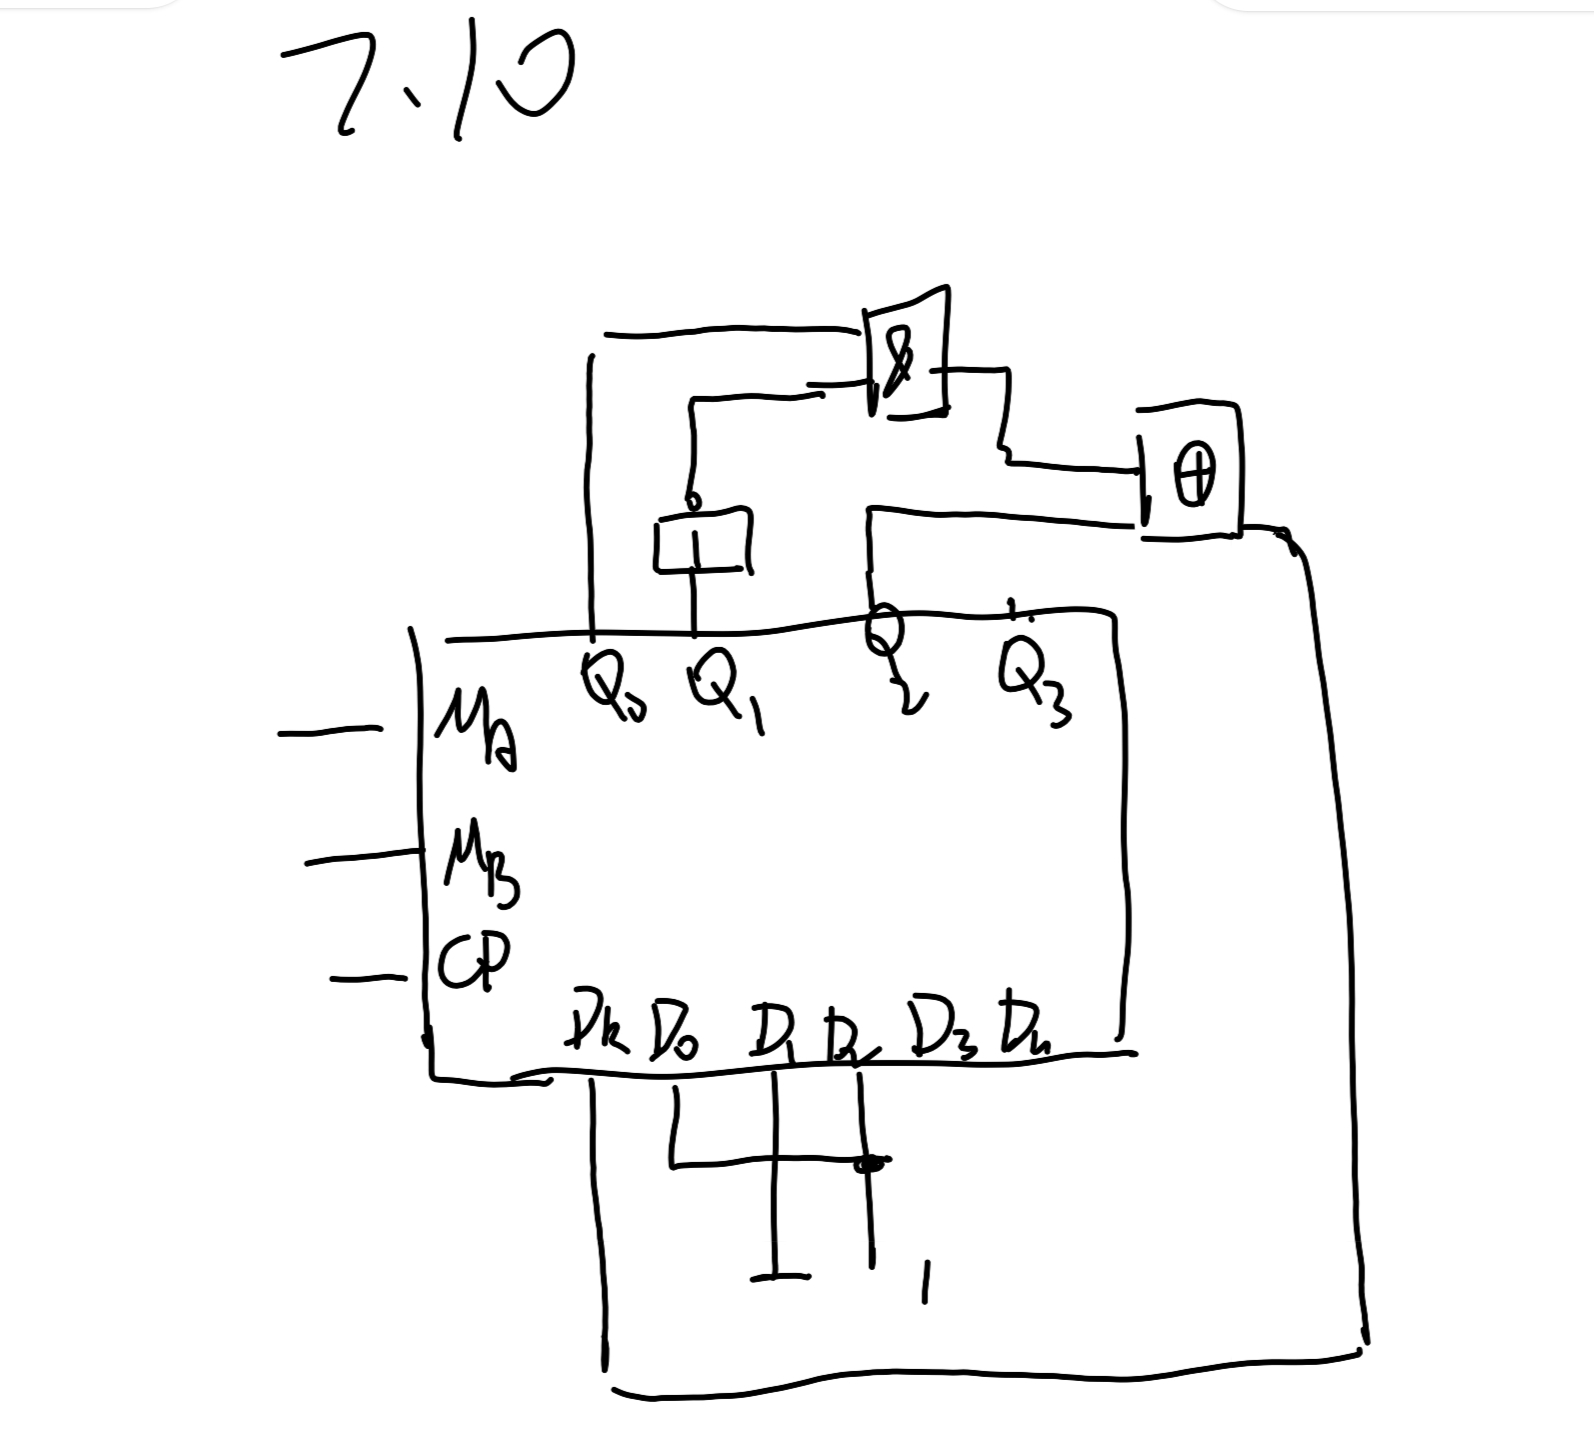 7.10
&
⊕
1
Q0 Q1 Q2 Q3
MA
MB
CP
DR D0 D1 D2 D3 D4
1